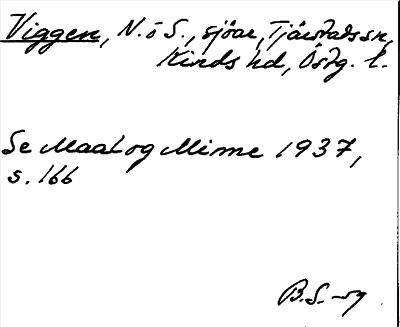 Viggen, N. o S., sjöar, Tjärstads sn,
Kinds hd, Östg. l.
Se Maal og Minne 1937,
s. 166
B.S-sg